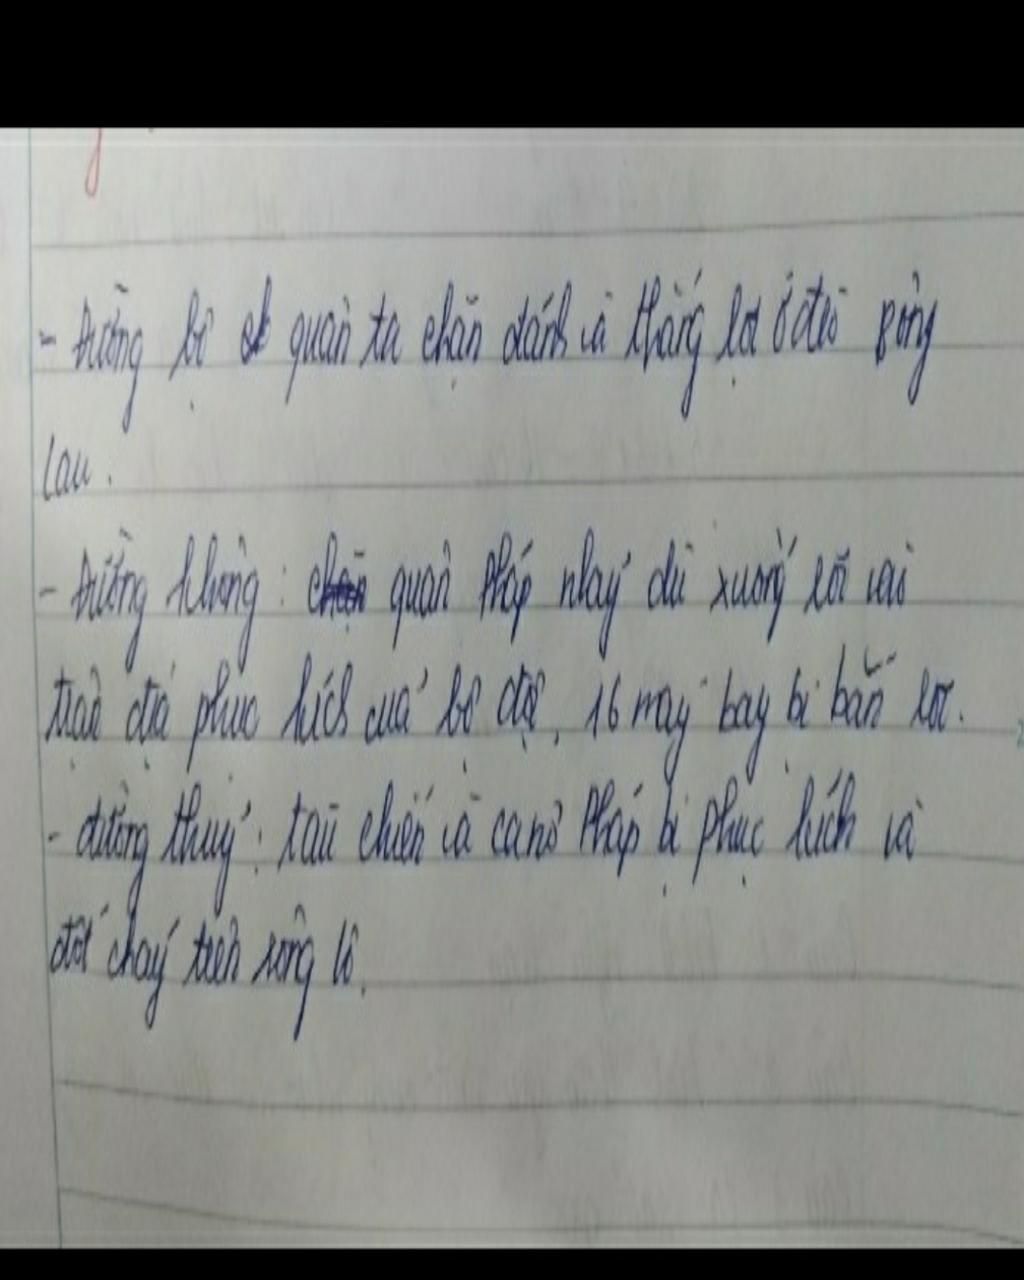 - Đường bộ quân ta chặn đánh và thắng lợi ở đèo Bông
lau.
- Đường không: quân Pháp nhảy dù xuống rơi vào
trận địa phục kích của bộ đội, 16 máy bay bị bắn rơi.
- đường thuỷ: tàu chiến và ca nô Pháp bị phục kích và
đốt cháy trên sông lô.